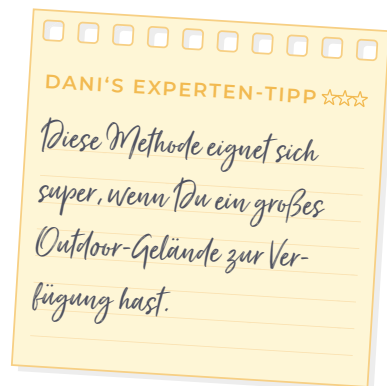 DANI'S EXPERTEN-TIPP
Diese Methode eignet sich
super, wenn Du ein großes
Outdoor-Gelände zur Ver-
fügung hast.